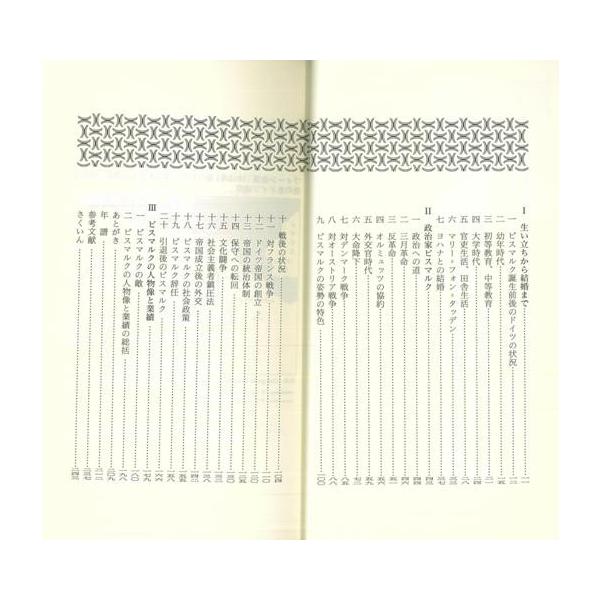 I 生い立ちから結婚まで
一 ビスマルク誕生前後のドイツの状況
二 幼年時代
三 初等教育、中等教育
四 大学時代
五 官吏生活、田舎生活
六 マリー・フォン・タッデン
七 ヨハナとの結婚
II 政治家ビスマルク
一 政治への道
二 三月革命
三 反革命
四 オルミュッツの協約
五 外交官時代
六 大命降下
七 対デンマーク戦争
八 対オーストリア戦争
九 ビスマルクの姿勢の特色 一〇〇
十 戦後の状況 一〇四
十一 対フランス戦争
十二 ドイツ帝国の創立
十三 帝国の統治体制
十四 保守への転回
十五 文化闘争
十六 社会主義者鎮圧法
十七 帝国成立後の外交
十八 ビスマルクの社会政策
十九 ビスマルク辞任
二十 引退後のビスマルク
III ビスマルクの人物像と業績
一 ビスマルクの敵
二 ビスマルクの人物像と業績の総括
あとがき
年譜
参考文献
さくいん